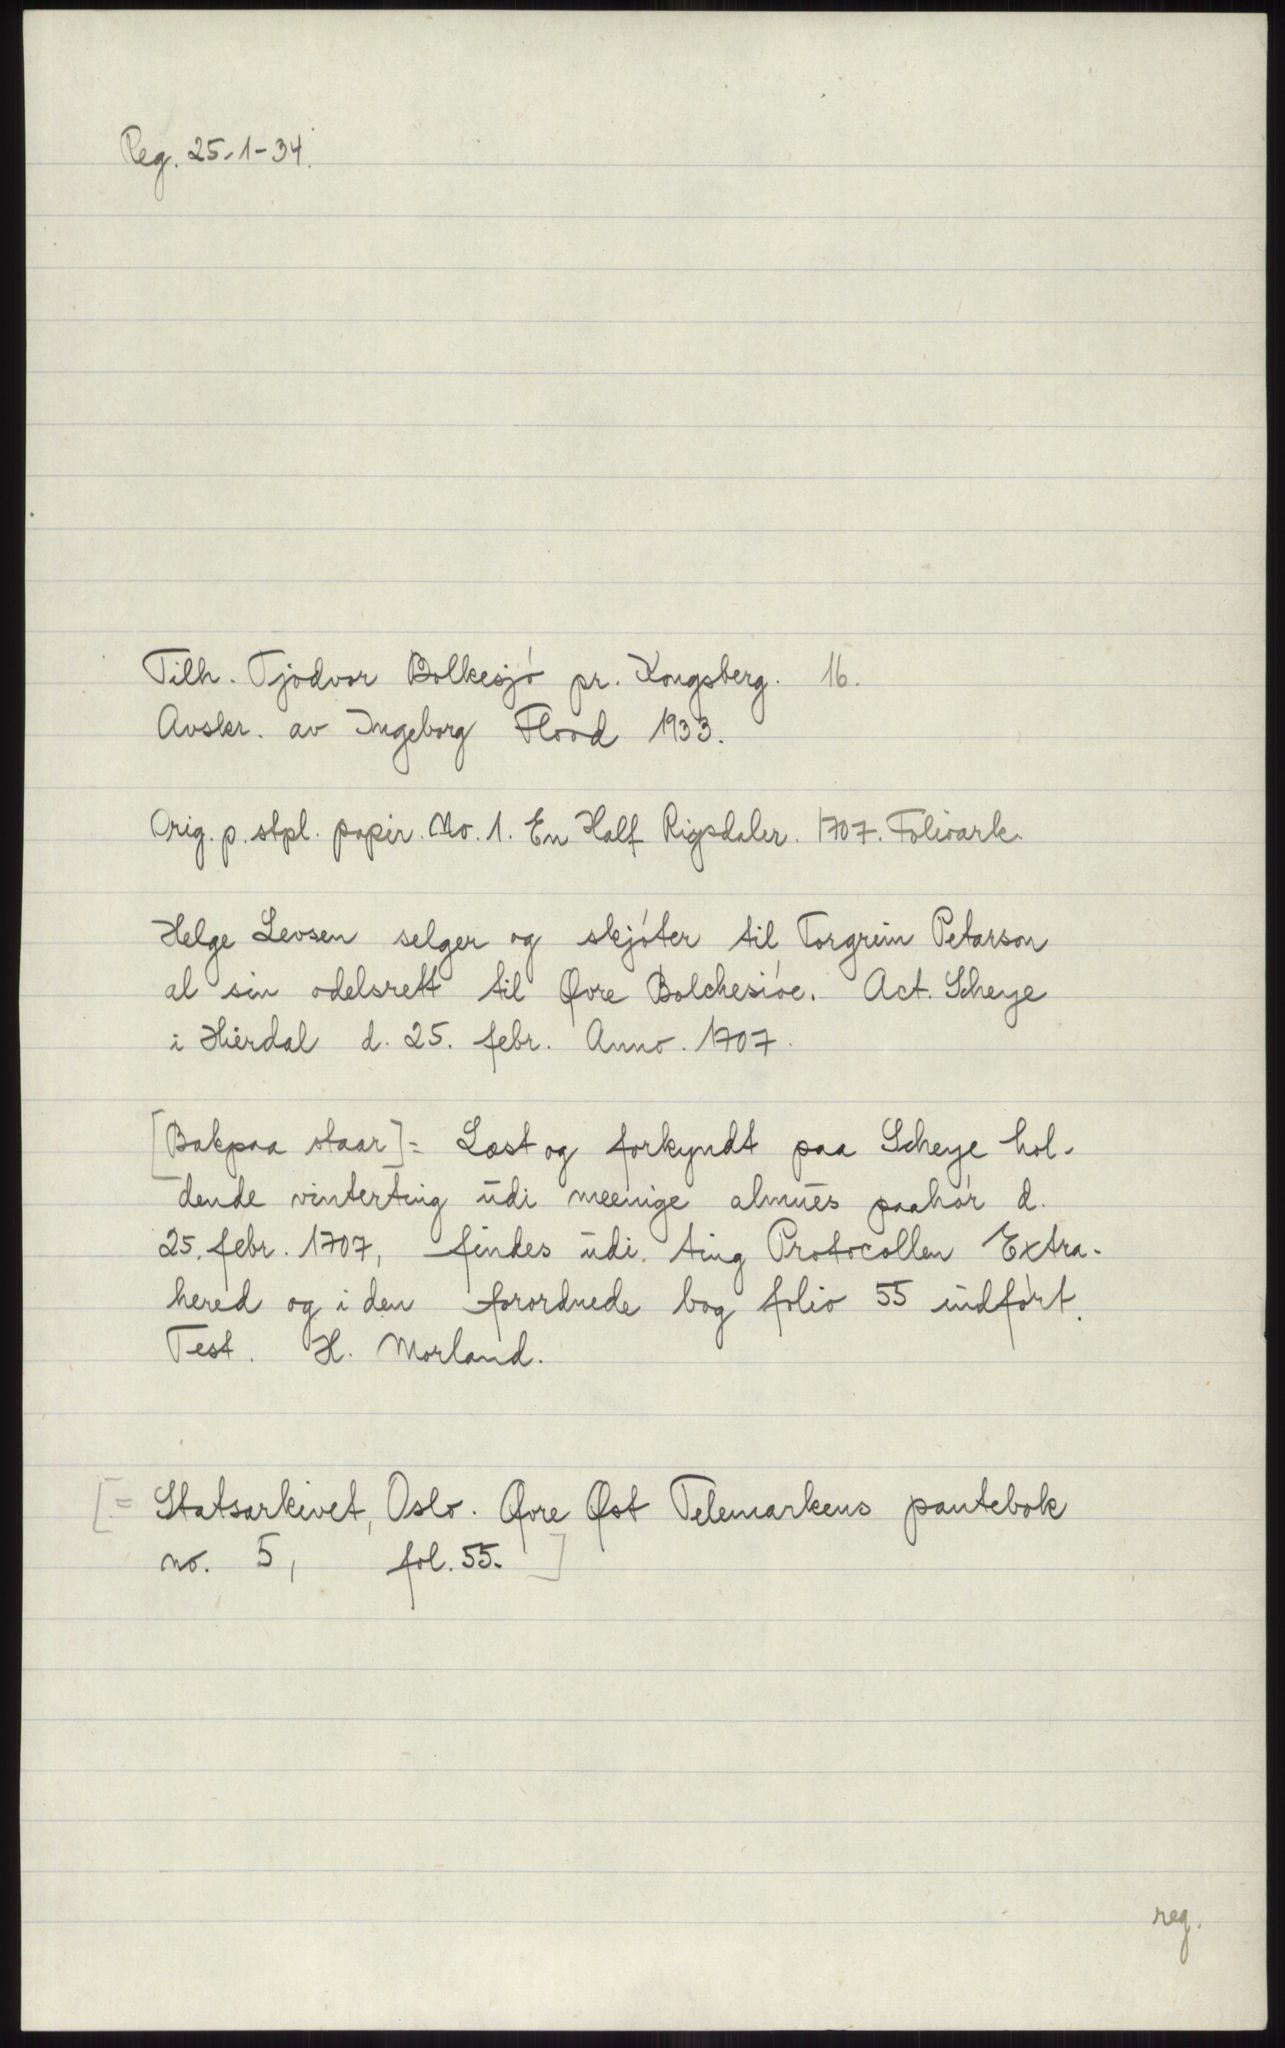 Reg. 25-1-34.
Tilh. Tjodvor Bolkesjó pr. Kongsberg. 16.
Avskr. av Ingeborg Flood 1933.
Orig. p. stpl. papir No. 1. En Half Rigsdaler. 1707. Folioark.
Helge Levsen selger og skjóter til Torgrim Petarson
al sin odelsrett til Øvre Bolchesióe. Act. Scheye
i Hierdal d. 25. febr. Anno. 1707.
[Bakpaa staar] = Læst og forkyndt paa Scheye hol-
dende vinterting udi meenige almues paahór d.
25. febr. 1707, findes udi ting Protocollen Extra-
hered og i den forordnede bog folio 55 indfórt.
Test. H. Morland.
[= Statsarkivet, Oslo. Øvre Øst Telemarkens pantebok
no. 5, fol. 55. ]
reg.